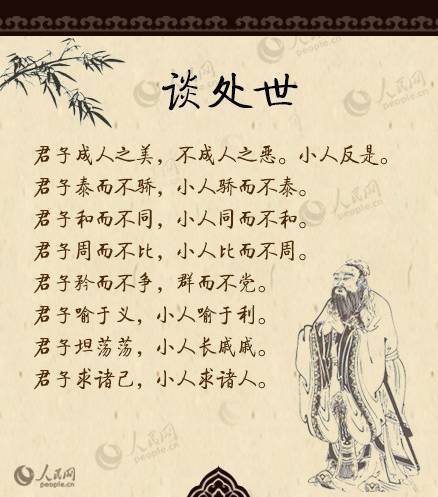 谈处世
君子成人之美，不成人之恶。小人反是。
君子泰而不骄，小人骄而不泰。
君子和而不同，小人同而不和。
君子周而不比，小人比而不周。
君子矜而不争，群而不党。
君子喻于义，小人喻于利。
君子坦荡荡，小人长戚戚。
君子求诸己，小人求诸人。
人民网
people.cn